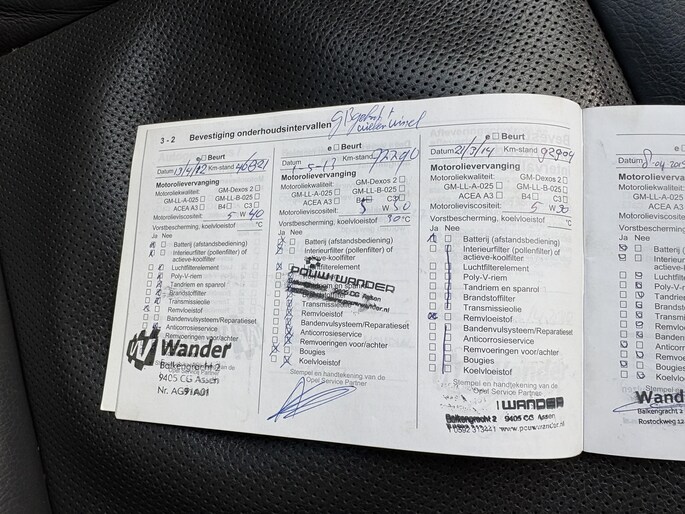 3 - 2 Bevestiging onderhoudsintervallen
e Beurt
Datum 13/4/12 Km-stand
Motorolievervanging
Motoroliekwaliteit: GM-Dexos 2
GM-LL-A-025 GM-LL-B-025
ACEA A3 B4 C3
Motorolieviscositeit: 5 W 40
Vorstbescherming, koelvloeistof °C
Ja Nee
Batterij (afstandsbediening)
Interieurfilter (pollenfilter) of
actieve-koolfilter
Luchtfilterelement
Poly-V-riem
Tandriem en spanrol
Brandstoffilter
Transmissieolie
Remvloeistof
Bandenvulsysteem/Reparatieset
Anticorrosieservice
Remvoeringen voor/achter
Wander
Balkengracht 2
9405 CG Assen
Nr. AG91A01
e Beurt
Datum 1-5-13 Km-stand 72290
Motorolievervanging
Motoroliekwaliteit: GM-Dexos 2
GM-LL-A-025 GM-LL-B-025
ACEA A3 B4 C3
Motorolieviscositeit: 5 W 30
Vorstbescherming, koelvloeistof 30 °C
Ja Nee
Batterij (afstandsbediening)
Interieurfilter (pollenfilter) of
actieve-koolfilter
Luchtfilterelement
POUWWANDER
9405 CG Assen
Brandstoffilter
Transmissieolie
Remvloeistof
Bandenvulsysteem/Reparatieset
Anticorrosieservice
Remvoeringen voor/achter
Bougies
Koelvloeistof
Stempel en handtekening van de
Opel Service Partner
e Beurt
Datum 21/3/14 Km-stand 92904
Motorolievervanging
Motoroliekwaliteit: GM-Dexos 2
GM-LL-A-025 GM-LL-B-025
ACEA A3 B4 C3
Motorolieviscositeit: 5 W 30
Vorstbescherming, koelvloeistof °C
Ja Nee
Batterij (afstandsbediening)
Interieurfilter (pollenfilter) of
actieve-koolfilter
Luchtfilterelement
Poly-V-riem
Tandriem en spanrol
Brandstoffilter
Transmissieolie
Remvloeistof
Bandenvulsysteem/Reparatieset
Anticorrosieservice
Remvoeringen voor/achter
Bougies
Koelvloeistof
Stempel en handtekening van de
Opel Service Partner
WANDER
Balkengracht 2 9405 CG Assen
0592 313441 www.pouwwander.nl
Datum
Motorolievervanging
Motoroliekwaliteit:
GM-LL-A-025
ACEA A3
Motorolieviscositeit:
Vorstbescherming,
Ja Nee
Batterij
Interieur
actieve-k
Luchtfilt
Poly-V-
Tandrie
Brands
Transmi
Remvlo
Banden
Anticorr
Remvoe
Bougies
Koelvloe
Stempel en
Wand
Balkengracht 2
Rostockweg 12